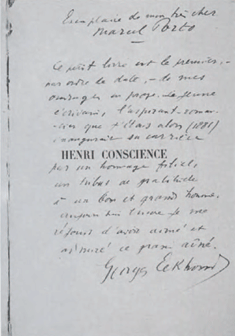 Exemplaire de mon très cher
Marcel
Ce petit livre est le premier,
par ordre de date, de mes
ouvrages en prose. Le jeune
écrivain, l'aspirant-roman-
cier que j'étais alors (1881)
inaugurait sa carrière
HENRI CONSCIENCE
par un hommage filial,
un tribut de gratitude
à un bon et grand homme,
aujourd'hui encore je me
réjouis d'avoir aimé et
admiré ce grand aîné.
Georges Eekhoud